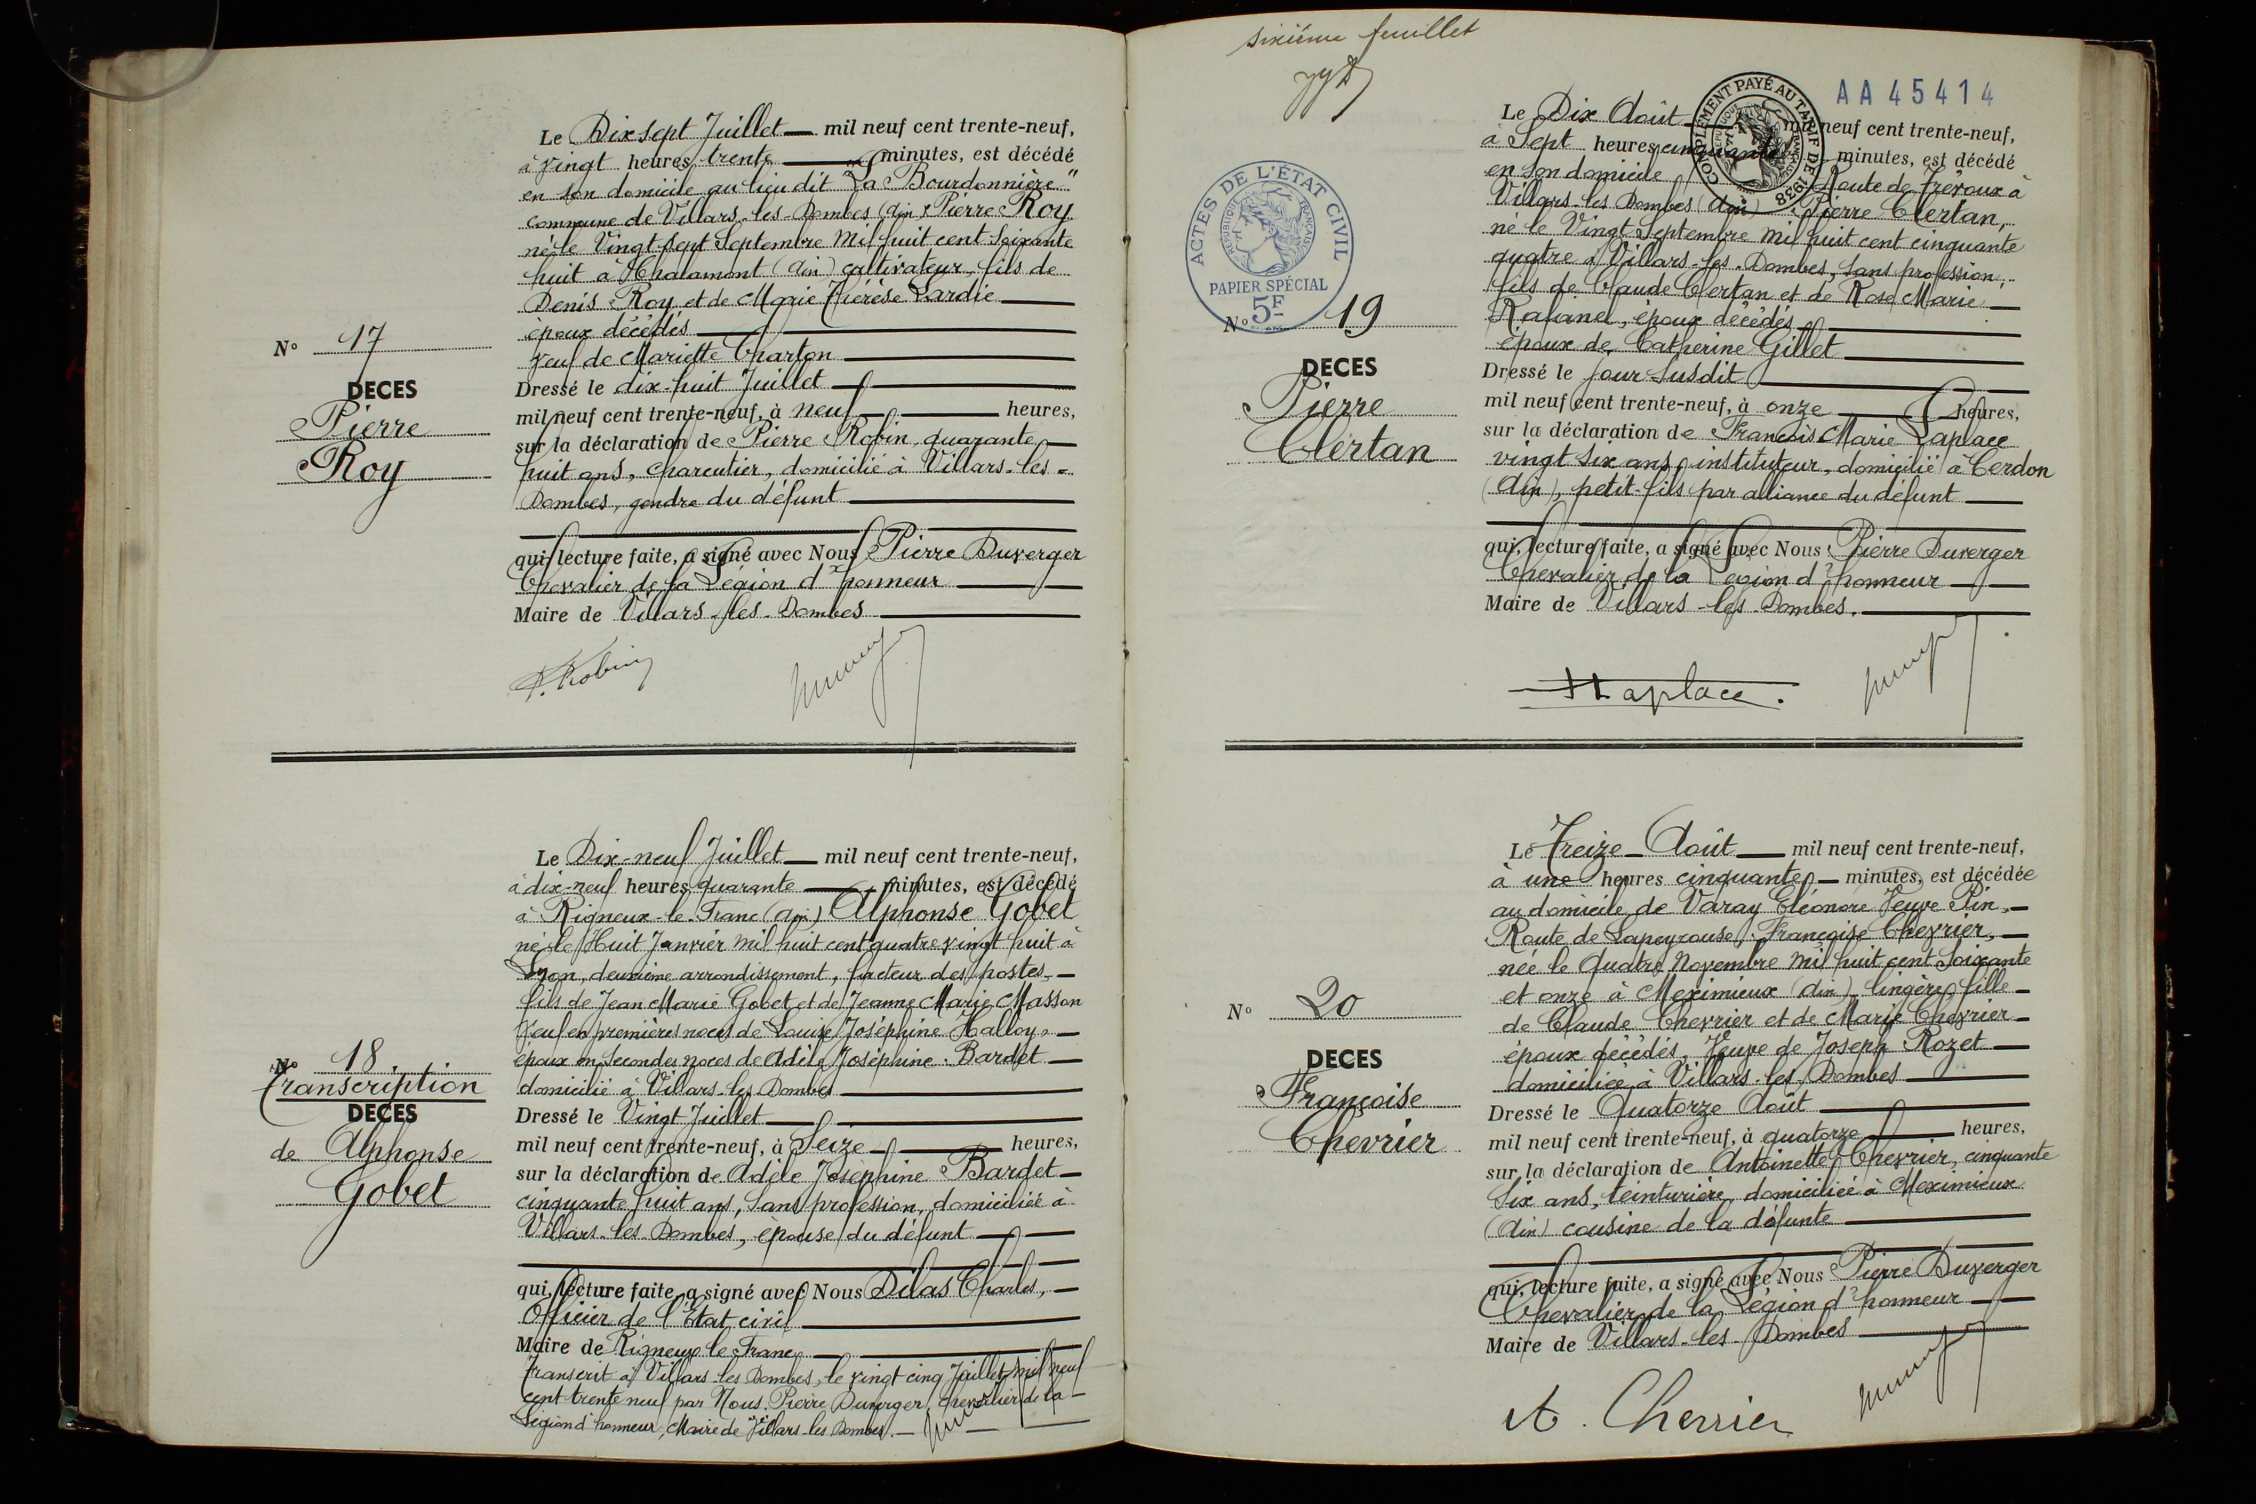 Le Dix sept Juillet mil neuf cent trente-neuf,
à vingt heures trente minutes, est décédé
en son domicile au lieu dit "La Bourdonnière"
commune de Villars-les-Dombes (Ain) Pierre Roy
né le Vingt-sept Septembre Mil huit cent soixante
huit à Chalamont (Ain) cultivateur, fils de
Denis Roy et de Marie Thérèse Lardie
époux décédés
veuf de Mariette Charton
N° 17
DECES
Pierre
Roy
Dressé le dix-huit Juillet
mil neuf cent trente-neuf, à neuf heures,
sur la déclaration de Pierre Robin, quarante
huit ans, charcutier, domicilié à Villars-les-
Dombes, gendre du défunt
qui, lecture faite, a signé avec Nous Pierre Duverger
Chevalier de la Légion d'honneur
Maire de Villars-les-Dombes
P. Robin
Le Dix-neuf Juillet mil neuf cent trente-neuf,
à dix-neuf heures quarante minutes, est décédé
à Rigneux-le-Franc (Ain) Alphonse Gobet
né le Huit Janvier mil huit cent quatre vingt huit à
Lyon, deuxième arrondissement, facteur des postes,
fils de Jean Marie Gobet et de Jeanne Marie Masson
Veuf en premières noces de Louise Joséphine Halloy
époux en secondes noces de Adèle Joséphine Bardet
domicilié à Villars-les-Dombes
N° 18
Transcription
DECES
de Alphonse
Gobet
Dressé le Vingt Juillet
mil neuf cent trente-neuf, à Seize heures,
sur la déclaration de Adèle Joséphine Bardet
cinquante huit ans, sans profession, domiciliée à
Villars-les-Dombes, épouse du défunt
qui, lecture faite, a signé avec Nous Dilas Charles,
Officier de l'Etat civil
Maire de Rigneux le Franc
Transcrit à Villars-les-Dombes, le vingt cinq Juillet mil neuf
cent trente neuf par Nous. Pierre Duverger, chevalier de la
Légion d'honneur, Maire de Villars-les-Dombes.
sixième feuillet
AA 45414
COMPLÉMENT PAYÉ AU TARIF DE 1938
RÉPUBLIQUE FRANÇAISE
ACTES DE L'ÉTAT CIVIL
RÉPUBLIQUE FRANÇAISE
PAPIER SPÉCIAL
5F
Le Dix Août mil neuf cent trente-neuf,
à Sept heures cinquante minutes, est décédé
en son domicile Route de Trévoux à
Villars-les-Dombes (Ain) Pierre Clertan,
né le Vingt Septembre mil huit cent cinquante
quatre à Villars-les-Dombes, sans profession,
fils de Claude Clertan et de Rose Marie
Rafanel, époux décédés
époux de Catherine Gillet
N° 19
DECES
Pierre
Clertan
Dressé le jour susdit
mil neuf cent trente-neuf, à onze heures,
sur la déclaration de François Marie Laplace
vingt six ans, instituteur, domicilié à Cerdon
(Ain), petit-fils par alliance du défunt
qui, lecture faite, a signé avec Nous Pierre Duverger
Chevalier de la Légion d'honneur
Maire de Villars-les-Dombes.
Laplace.
Le Treize Août mil neuf cent trente-neuf,
à une heures cinquante minutes, est décédée
au domicile de Varay Eléonore Veuve Pin,
Route de Lapeyrouse, Françoise Chevrier,
née le Quatre Novembre Mil huit cent soixante
et onze à Meximieux (Ain) lingère, fille
de Claude Chevrier et de Marie Chevrier
époux décédés, Veuve de Joseph Rozet
domiciliée à Villars-les-Dombes
N° 20
DECES
Françoise
Chevrier
Dressé le Quatorze Août
mil neuf cent trente-neuf, à quatorze heures,
sur la déclaration de Antoinette Chevrier, cinquante
six ans, teinturière, domiciliée à Meximieux
(Ain) cousine de la défunte
qui, lecture faite, a signé avec Nous Pierre Duverger
Chevalier de la Légion d'honneur
Maire de Villars-les-Dombes
A. Chevrier